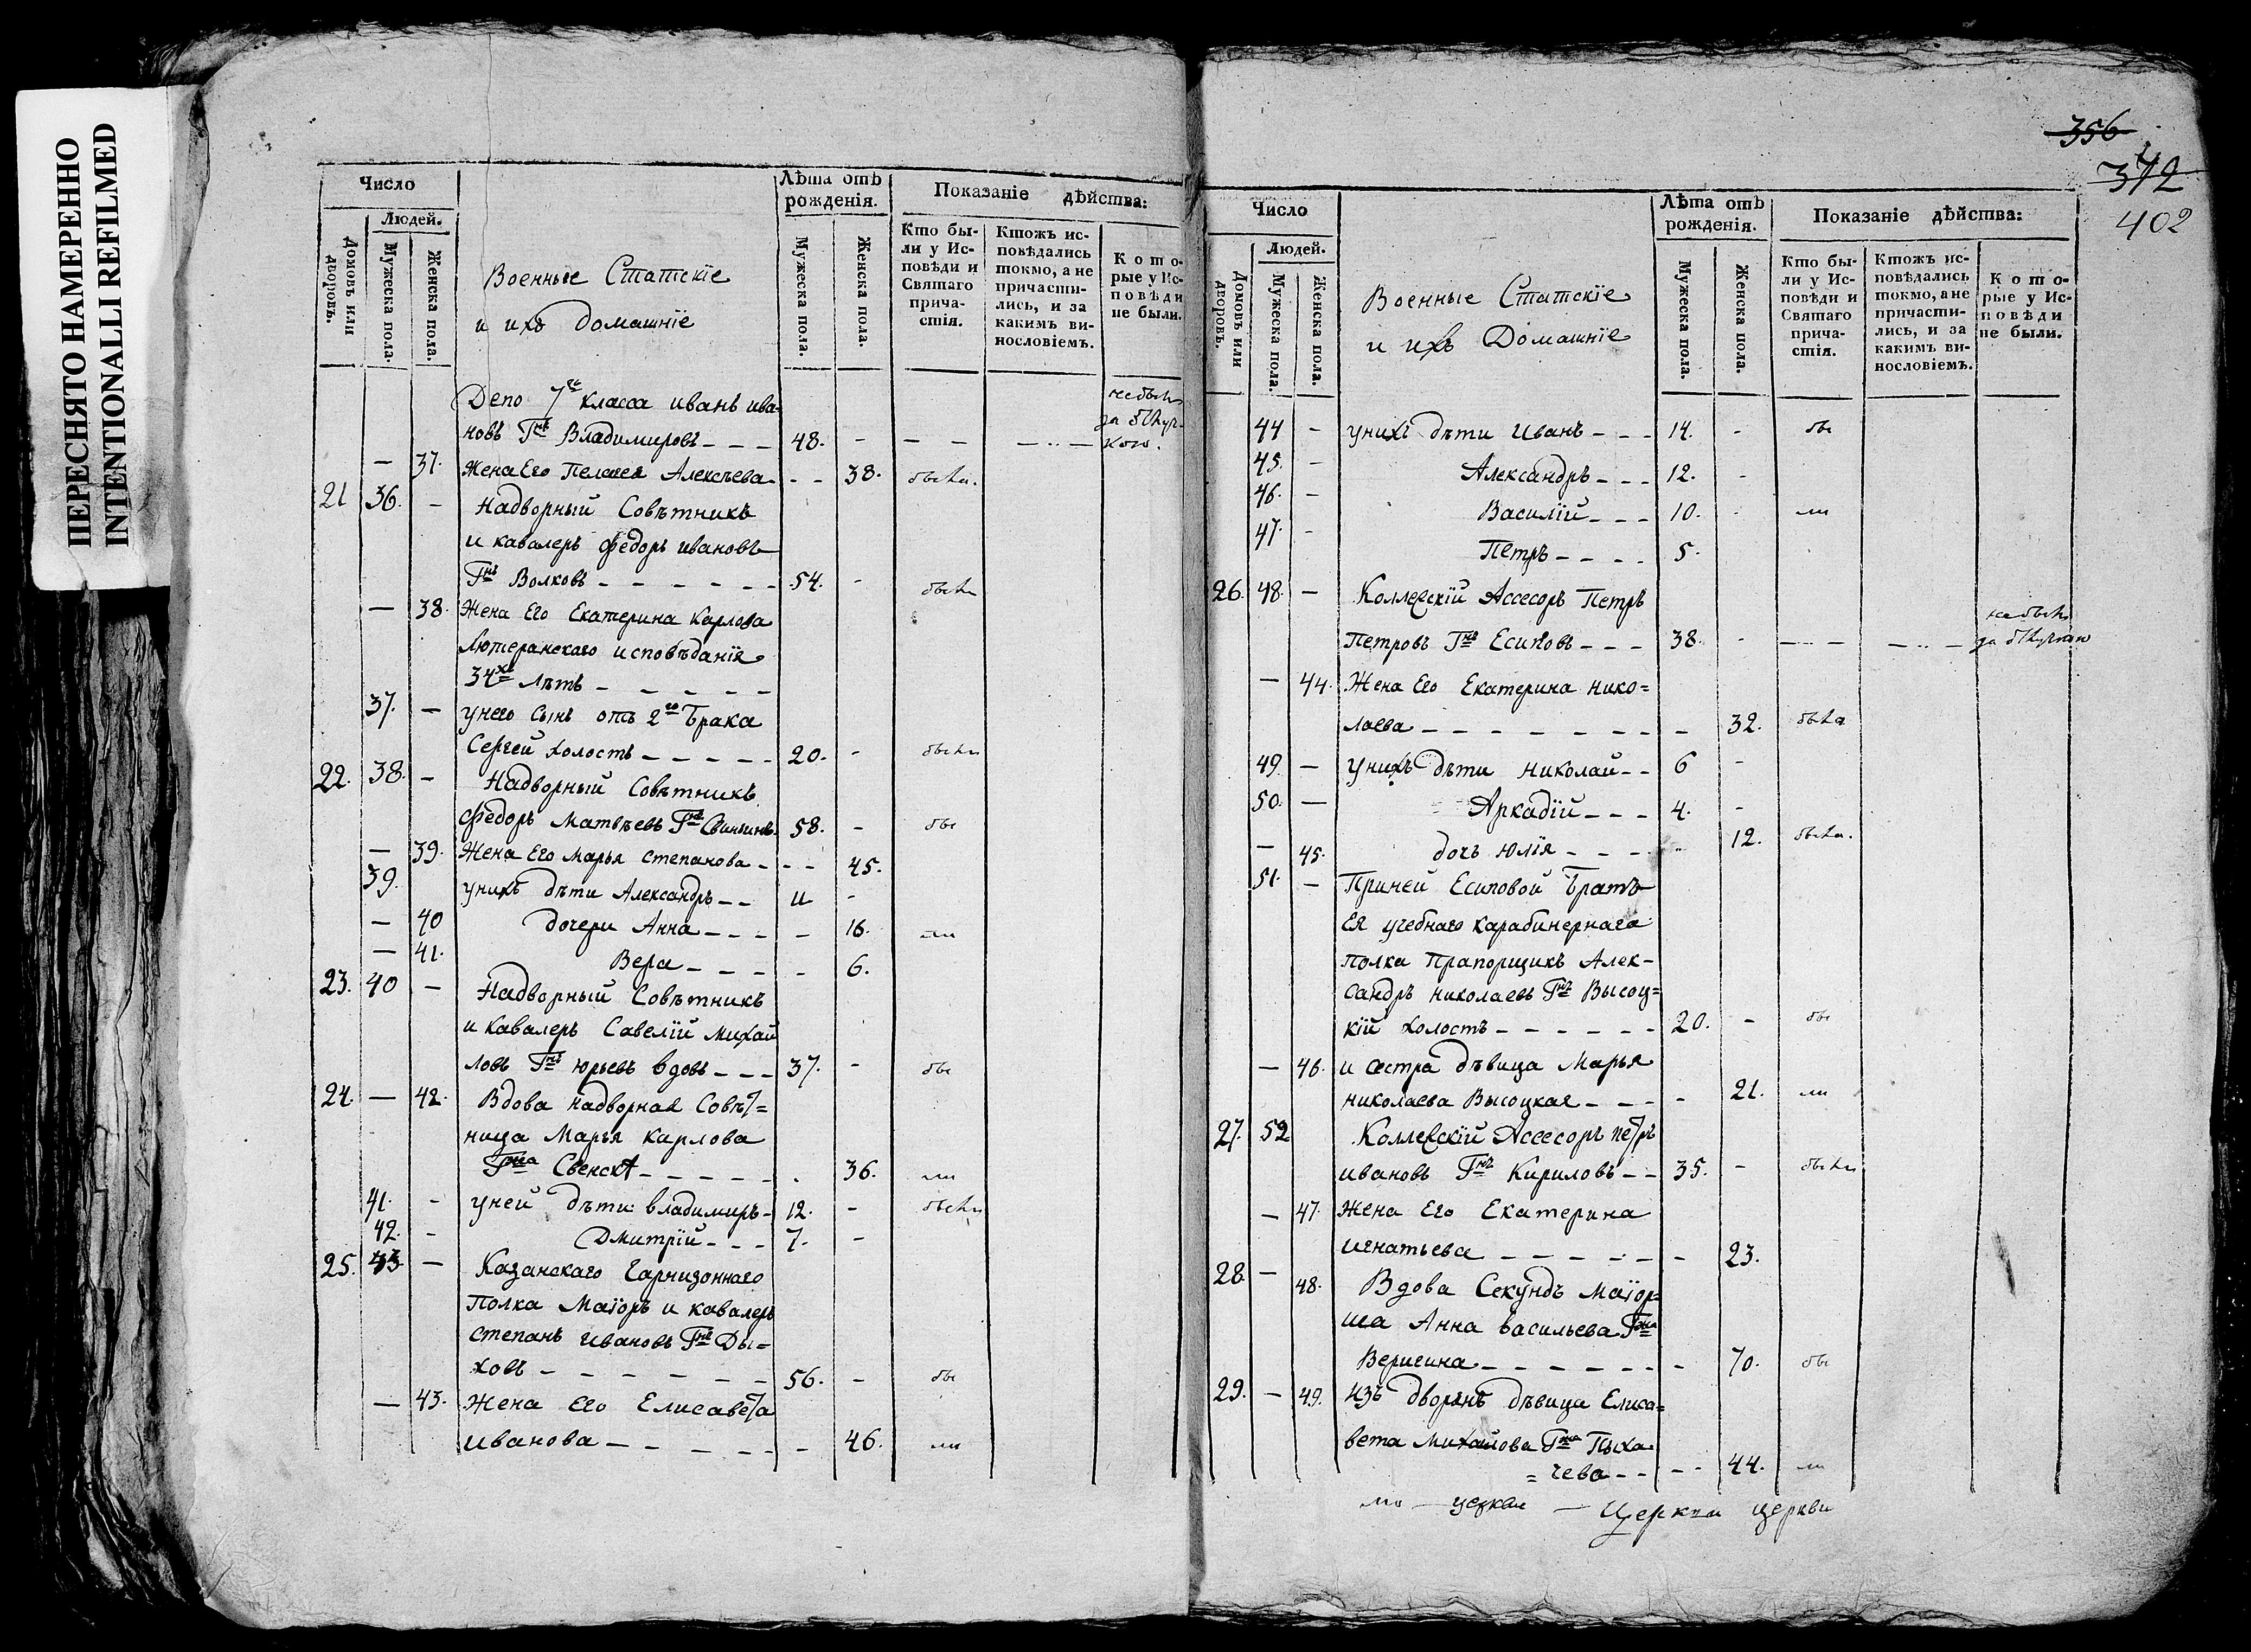 ПЕРЕСНЯТО НАМЕРЕННО
INTENTIONALLI REFILMED
Число
Людей.
Домовъ или дворовъ.
Мужеска пола.
Женска пола.
Военные Статскіе
и ихъ домашніе
Лѣта отъ рожденія.
Мужеска пола.
Женска пола.
Показаніе дѣйства:
Кто были у Исповѣди и Святаго причастія.
Ктожъ исповѣдались токмо, а не причастились, и за какимъ винословіемъ.
Которые у Исповѣди не были.
Депо 7го класса иванъ ива-
новъ Гнъ Владимировъ - - - 48. - - - - .. -
- 37. Жена Его Пелагея Алексѣева - - 38.
21 36. - Надворный Совѣтникъ
и кавалеръ федоръ ивановъ
Гнъ Волковъ - - - - - - 54. -
- 38. Жена Его Екатерина Карлова
Лютеранскаго исповѣданія
34хъ лѣтъ - - - - - -
37. - унего сынъ отъ 2го брака
Сергей холостъ - - - - - 20. -
22. 38. - Надворный Совѣтникъ
федоръ Матвѣевъ Гнъ 58. - бы
- 39. Жена Его марья степанова - - - 45.
39. унихъ дѣти Александръ - - 11 -
- 40 дочери Анна - - - - 16. ли
- 41. Вера - - - - 6.
23. 40 - Надворный Совѣтникъ
и Кавалеръ Савелій михай
ловъ Гнъ юрьевъ вдовъ - - - 37. - бы
24. - 42. Вдова надворная Совѣт=
ница Марья карлова
Гжа - - - - - . 36. ли
41. - уней дѣти владимиръ - 12. -
42. - Дмитрій - - - 7. -
25. 43 - Казанскаго гарнизоннаго
Полка Маіоръ и кавалеръ
степанъ ивановъ Гнъ Ды=
ховъ - - - - - - 56. - бы
- 43. Жена Его Елисавета
иванова - - - - - - - 46. ли
356
372
402
Число
Людей.
Домовъ или дворовъ.
Мужеска пола.
Женска пола.
Военные Статскіе
и ихъ Домашніе
Лѣта отъ рожденія.
Мужеска пола.
Женска пола.
Показаніе дѣйства:
Кто были у Исповѣди и Святаго причастія.
Ктожъ исповѣдались токмо, а не причастились, и за какимъ винословіемъ.
Которые у Исповѣди не были.
44 - унихъ дѣти Иванъ - - - 14. - бы
45. - Александръ - - - 12. -
46. - Василій - - - 10. - ли
47. - Петръ - - - - 5.
26. 48. - Коллежскій Ассесоръ Петръ
Петровъ Гнъ Есиповъ - - - 38. - - - - - .. -
- 44. Жена Его Екатерина нико=
лаева - - - - - - - - - 32. была
49. - унихъ дѣти николай - - 6 -
50. - Аркадій - - - 4. -
- 45. дочь юлія - - - - 12. была.
51. - Приней Есиповой братъ
Ея учебнаго карабинернаго
полка Прапорщикъ Алек-
сандръ николаевъ Гнъ Высоц=
кій холостъ - - - - - - 20. - бы
- 46. и сестра дѣвица Марья
николаева Высоцкая - - - - 21. ли
27. 52 Коллежскій Ассесоръ петръ
ивановъ Гнъ Кириловъ - - 35. -
- 47. Жена Его Екатерина
игнатьева - - - - - - 23.
28 - 48. Вдова Секундъ Маіор=
ша Анна васильева Гжа
Веригина - - - - - - - 70. бы
29. - 49. изъ дворянъ дѣвица Елиса=
вета Михайлова Гжа Пыха=
=чева - - - - 44. ли
церкви